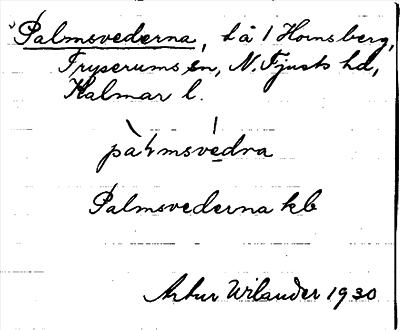 Palmsvederna, t å / Hornsberg,
Tryserums sn, N. Tjusts hd,
Kalmar l.
pàlmsvédra
Palmsvederna kb
Artur Wilander 1930